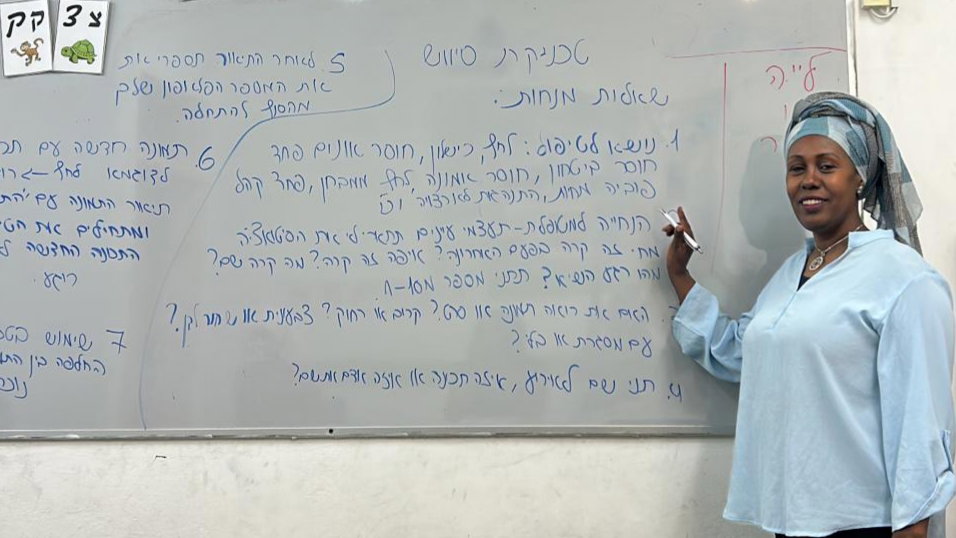 צ 3
ק ק
טכניקת סיווש
שאלות מנחות:
1. נושא לטיפול: לחץ, כישלון, חוסר אונים פחד
חוסר ביטחון, חוסר אמונה, לחץ ממבחן, פחד קהל
פוביה מחות, התנהגות לא רצויה
הנחייה למטפלת - תעצמי עינים תתארי לי את הסיטואציה
מתי זה קרה בפעם האחרונה? איפה זה קרה? מה קרה שם?
מהו רגע השיא? תתני מספר מ 10-1
האם את רואה תמונה או סרט? קרוב או רחוק? צבעונית או שחור לבן?
עם מסגרת או בלי?
4. תני שם לאירוע, איזה תכונה או איזה אדם את שם?
5. לאחר התיאור תספרי את
את המספר הפלאפון שלך
מהסוף להתחלה.
6. תמונה חדשה עם
לדוגמא לחץ ->
תיאור התמונה עם
ומתחילים את
התכונה החדשה
רוגע.
7 שימוש
החלפה בין